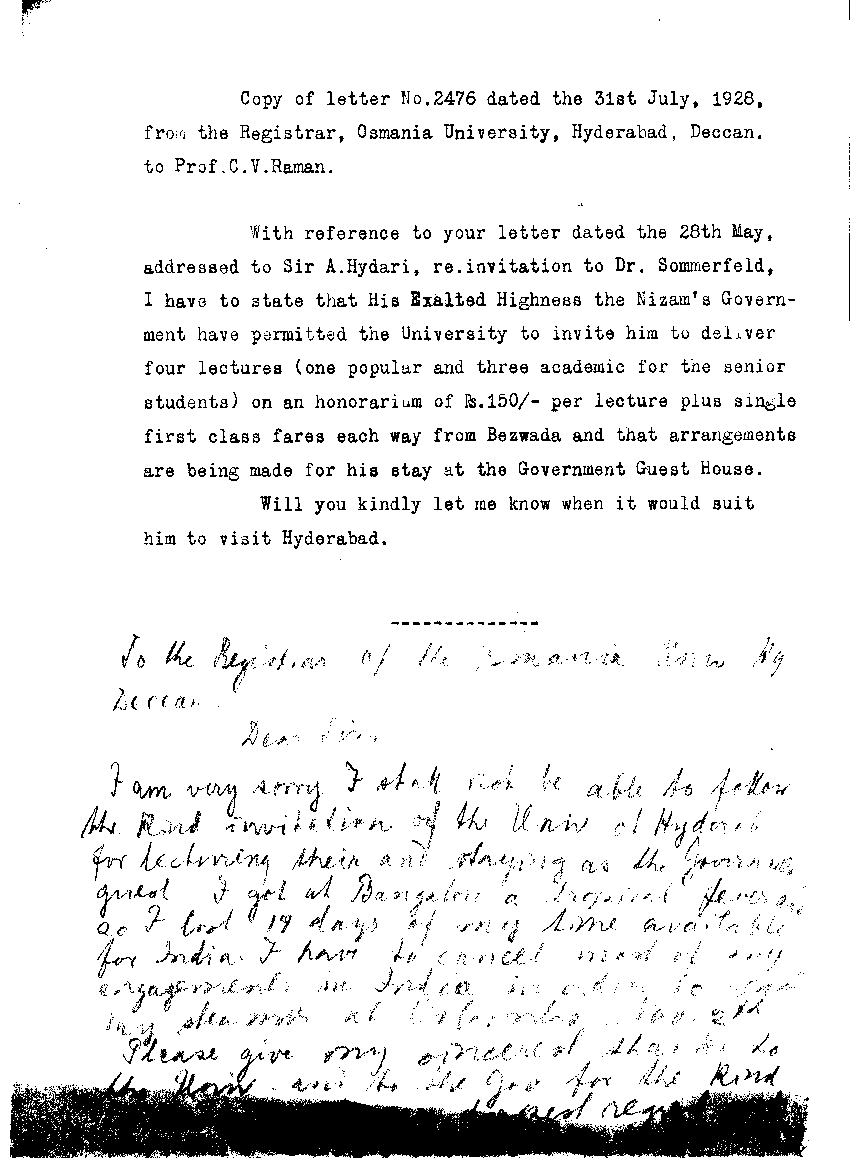 Copy of letter No.2476 dated the 31st July, 1928,
from the Registrar, Osmania University, Hyderabad, Deccan.
to Prof.C.V.Raman.
With reference to your letter dated the 28th May,
addressed to Sir A.Hydari, re.invitation to Dr. Sommerfeld,
I have to state that His Exalted Highness the Nizam's Govern-
ment have permitted the University to invite him to deliver
four lectures (one popular and three academic for the senior
students) on an honorarium of Rs.150/- per lecture plus single
first class fares each way from Bezwada and that arrangements
are being made for his stay at the Government Guest House.
Will you kindly let me know when it would suit
him to visit Hyderabad.
--------------
To the Registrar of the Osmania Univ Hy
Deccan.
Dear Sir,
I am very sorry I shall not be able to follow
the kind invitation of the Univ of Hyderab
for lecturing their and staying as the Governm
guest. I got at Bangalore a tropical fever
so I lost 19 days of my time available
for India. I have to cancel most of my
engagements in India in order to
my steamer at Colombo
Please give my sincerest thanks to
the Univ. and to the Gov for the kind